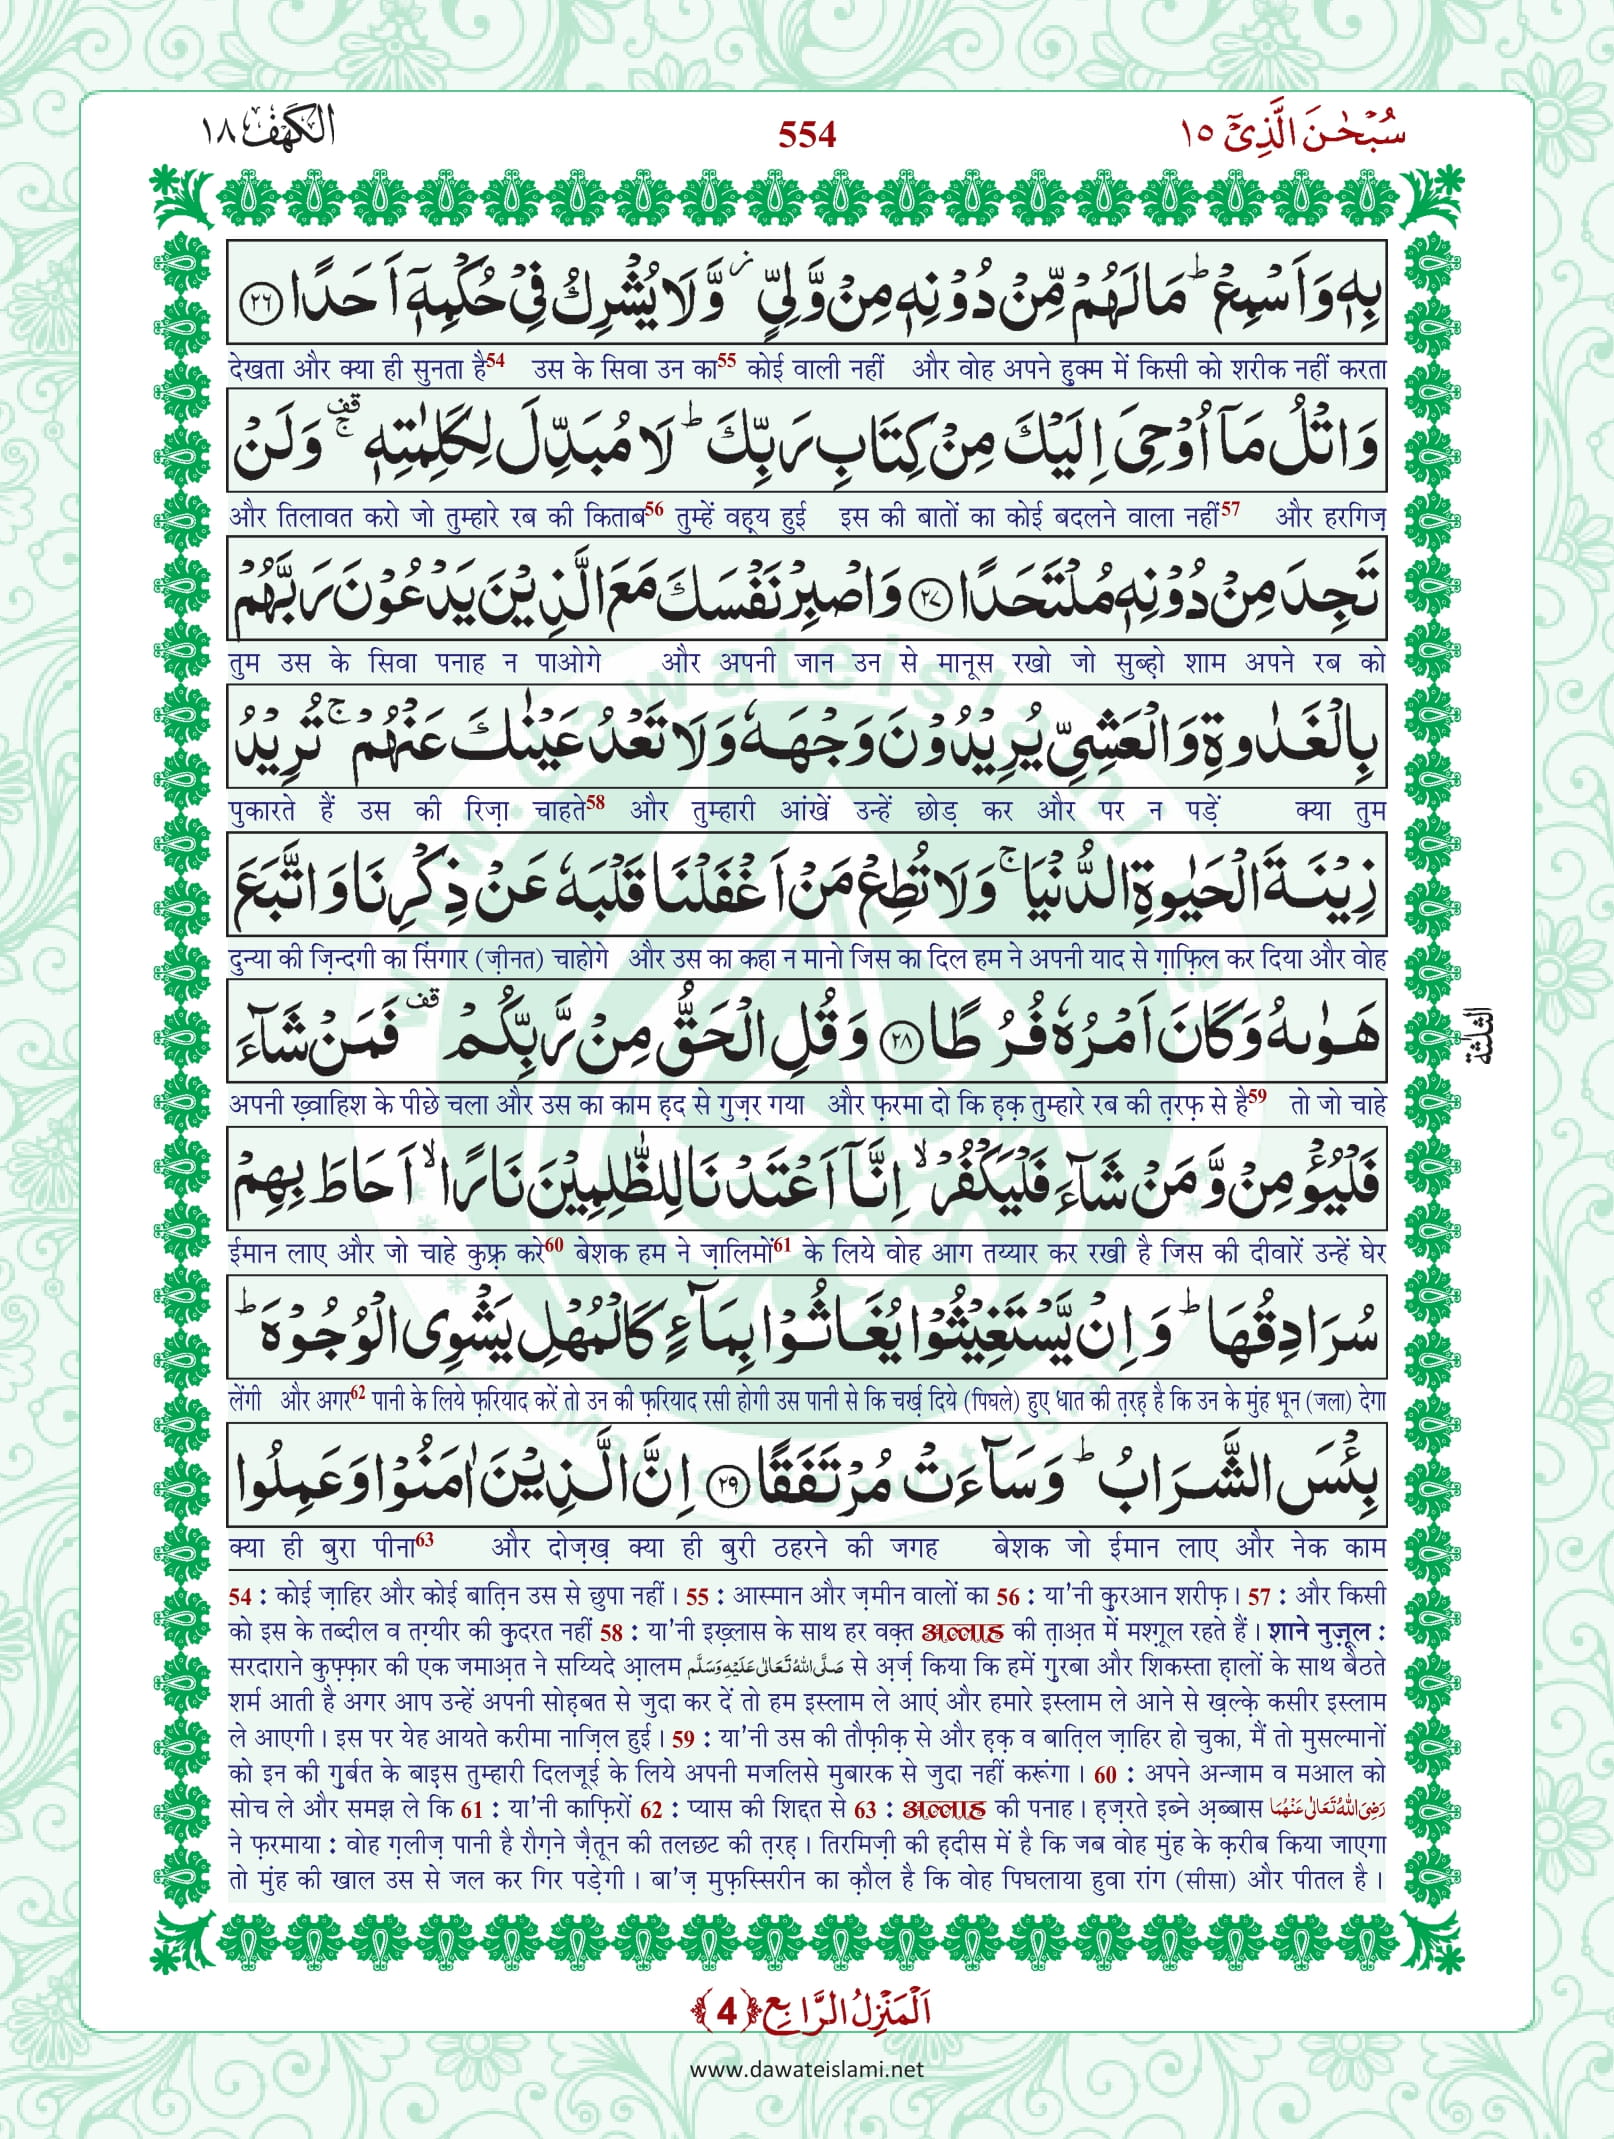 الكهف ١٨ 554 سُبْحٰنَ الَّذِیْۤ ١٥
بِهٖ وَ اَسْمِعْؕ مَا لَهُمْ مِّنْ دُوْنِهٖ مِنْ وَّلِیٍّ٘ وَّ لَا یُشْرِكُ فِیْ حُكْمِهٖۤ اَحَدًا ﴿٢٦﴾
देखता और क्या ही सुनता है54 उस के सिवा उन का55 कोई वाली नहीं और वोह अपने हुक्म में किसी को शरीक नहीं करता
وَ اتْلُ مَاۤ اُوْحِیَ اِلَیْكَ مِنْ كِتَابِ رَبِّكَؕ لَا مُبَدِّلَ لِكَلِمٰتِهٖ ۚقف وَ لَنْ
और तिलावत करो जो तुम्हारे रब की किताब56 तुम्हें वह्य हुई इस की बातों का कोई बदलने वाला नहीं57 और हरगिज़
تَجِدَ مِنْ دُوْنِهٖ مُلْتَحَدًا ﴿٢٧﴾ وَ اصْبِرْ نَفْسَكَ مَعَ الَّذِیْنَ یَدْعُوْنَ رَبَّهُمْ
तुम उस के सिवा पनाह न पाओगे और अपनी जान उन से मानूस रखो जो सुब्हो शाम अपने रब को
بِالْغَدٰوةِ وَ الْعَشِیِّ یُرِیْدُوْنَ وَجْهَهٗ وَ لَا تَعْدُ عَیْنٰكَ عَنْهُمْۚ تُرِیْدُ
पुकारते हैं उस की रिज़ा चाहते58 और तुम्हारी आंखें उन्हें छोड़ कर और पर न पड़ें क्या तुम
زِیْنَةَ الْحَیٰوةِ الدُّنْیَاۚ وَ لَا تُطِعْ مَنْ اَغْفَلْنَا قَلْبَهٗ عَنْ ذِكْرِنَا وَ اتَّبَعَ
दुन्या की ज़िन्दगी का सिंगार (ज़ीनत) चाहोगे और उस का कहा न मानो जिस का दिल हम ने अपनी याद से ग़ाफ़िल कर दिया और वोह
هَوٰىهُ وَ كَانَ اَمْرُهٗ فُرُطًا ﴿٢٨﴾ وَ قُلِ الْحَقُّ مِنْ رَّبِّكُمْ قف فَمَنْ شَآءَ
अपनी ख़्वाहिश के पीछे चला और उस का काम हद से गुज़र गया और फ़रमा दो कि हक़ तुम्हारे रब की त़रफ़ से है59 तो जो चाहे
الثلثة
فَلْیُؤْمِنْ وَّ مَنْ شَآءَ فَلْیَكْفُرْۙ اِنَّاۤ اَعْتَدْنَا لِلظّٰلِمِیْنَ نَارًاۙ اَحَاطَ بِهِمْ
ईमान लाए और जो चाहे कुफ़्र करे60 बेशक हम ने ज़ालिमों61 के लिये वोह आग तय्यार कर रखी है जिस की दीवारें उन्हें घेर
سُرَادِقُهَاؕ وَ اِنْ یَّسْتَغِیْثُوْا یُغَاثُوْا بِمَآءٍ كَالْمُهْلِ یَشْوِی الْوُجُوْهَؕ
लेंगी और अगर62 पानी के लिये फ़रियाद करें तो उन की फ़रियाद रसी होगी उस पानी से कि चर्ख़ दिये (पिघले) हुए धात की त़रह है कि उन के मुंह भून (जला) देगा
بِئْسَ الشَّرَابُؕ وَ سَآءَتْ مُرْتَفَقًا ﴿٢٩﴾ اِنَّ الَّذِیْنَ اٰمَنُوْا وَ عَمِلُوا
क्या ही बुरा पीना63 और दोज़ख़ क्या ही बुरी ठहरने की जगह बेशक जो ईमान लाए और नेक काम
54 : कोई ज़ाहिर और कोई बात़िन उस से छुपा नहीं। 55 : आस्मान और ज़मीन वालों का 56 : या'नी कुरआन शरीफ़। 57 : और किसी
को इस के तब्दील व तग़्यीर की कुदरत नहीं 58 : या'नी इख़्लास के साथ हर वक़्त अल्लाह की त़ाअ़त में मश्ग़ूल रहते हैं। शाने नुज़ूल :
सरदाराने कुफ़्फ़ार की एक जमाअ़त ने सय्यिदे आ़लम صَلَّی اللهُ تَعَالٰی عَلَیْهِ وَسَلَّم से अ़र्ज़ किया कि हमें गुरबा और शिकस्ता ह़ालों के साथ बैठते
शर्म आती है अगर आप उन्हें अपनी सोह़बत से जुदा कर दें तो हम इस्लाम ले आएं और हमारे इस्लाम ले आने से ख़ल्के़ कसीर इस्लाम
ले आएगी। इस पर येह आयते करीमा नाज़िल हुई। 59 : या'नी उस की तौफ़ीक़ से और ह़क़ व बात़िल ज़ाहिर हो चुका, मैं तो मुसल्मानों
को इन की गुर्बत के बाइस तुम्हारी दिलजूई के लिये अपनी मजलिसे मुबारक से जुदा नहीं करूंगा। 60 : अपने अन्जाम व मआल को
सोच ले और समझ ले कि 61 : या'नी काफ़िरों 62 : प्यास की शिद्दत से 63 : अल्लाह की पनाह। ह़ज़रते इब्ने अ़ब्बास رَضِیَ اللهُ تَعَالٰی عَنْهُمَا
ने फ़रमाया : वोह ग़लीज़ पानी है रौग़ने जै़तून की तलछट की त़रह। तिरमिज़ी की ह़दीस में है कि जब वोह मुंह के क़रीब किया जाएगा
तो मुंह की खाल उस से जल कर गिर पड़ेगी। बा'ज़ मुफ़स्सिरीन का क़ौल है कि वोह पिघलाया हुवा रांग (सीसा) और पीतल है।
اَلْمَنْزِلُ الرَّابِع ﴿4﴾
www.dawateislami.net